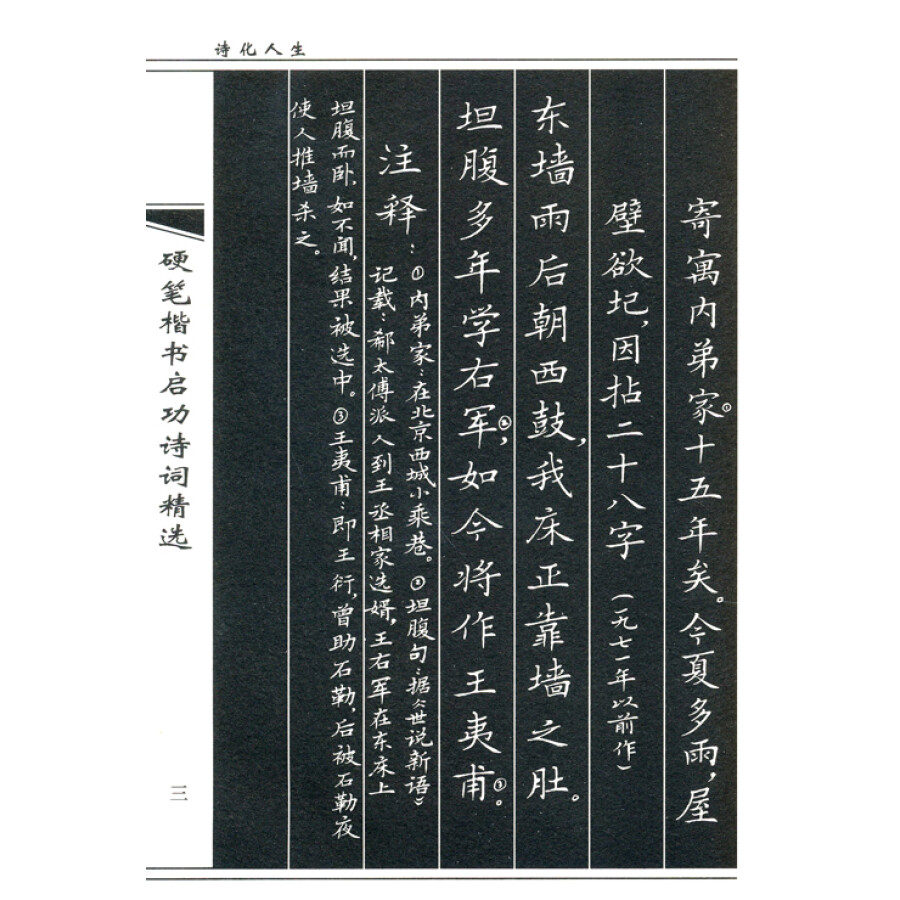 诗化人生
寄寓内弟家①十五年矣。今夏多雨，屋
壁欲圮，因拈二十八字（一九七一年以前作）
东墙雨后朝西鼓，我床正靠墙之肚。
坦腹多年学右军②，如今将作王夷甫③。
注释：①内弟家：在北京西城小乘巷。②坦腹句：据《世说新语》
记载：郗太傅派人到王丞相家选婿，王右军在东床上
坦腹而卧，如不闻，结果被选中。③王夷甫：即王衍，曾助石勒，后被石勒夜
使人推墙杀之。
硬笔楷书启功诗词精选
三